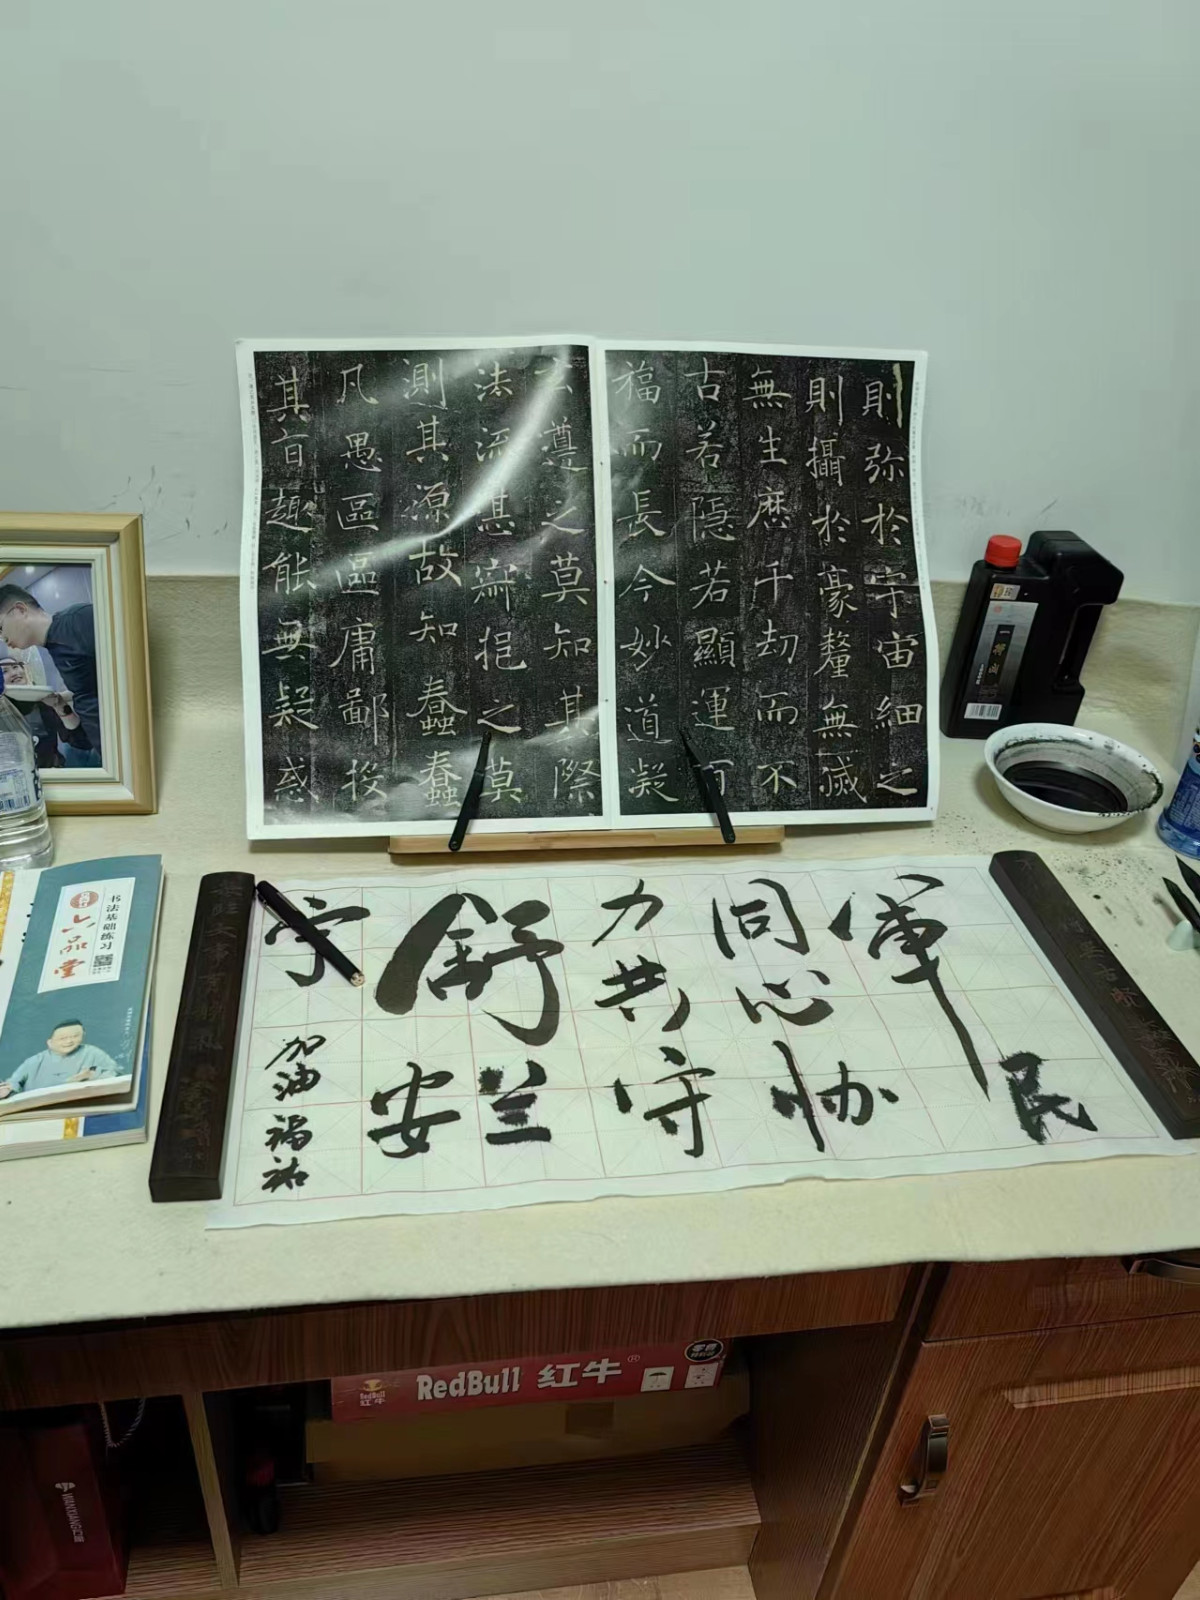 則弥於宇宙細之
則攝於豪釐無滅
無生歷千劫而不
古若隱若顯運百
福而長今妙道凝
玄遵之莫知其際
法流湛寂挹之莫
測其源故知蠢蠢
凡愚區區庸鄙投
其旨趣能無疑惑
军民
同心协
力共守
舒兰安
宁
加油福祐
书法基础练习
六品堂
RedBull 红牛®
RedBull
红牛